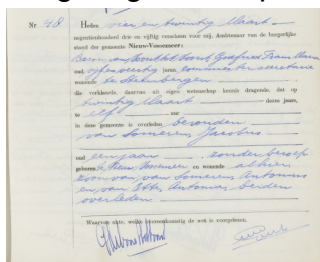 Nr 48 Heden vier en twintig Maart
negentienhonderd drie en vijftig verscheen voor mij, Ambtenaar van de burgerlijke
stand der gemeente Nieuw-Vossemeer:
Godfried Frans Maria
oud jaren,
wonende te Steenbergen
die verklaarde, daarvan uit eigen wetenschap kennis dragende, dat op
twintig Maart dezes jaars,
te elf uur
in deze gemeente is overleden, bevonden
van Someren Jacobus
oud een jaar, zonder beroep
geboren te Nieuw Vossemeer en wonende alhier
zoon van van Someren Antonius
en van Antonia beiden
overleden.
Waarvan akte, welke overeenkomstig de wet is voorgelezen.